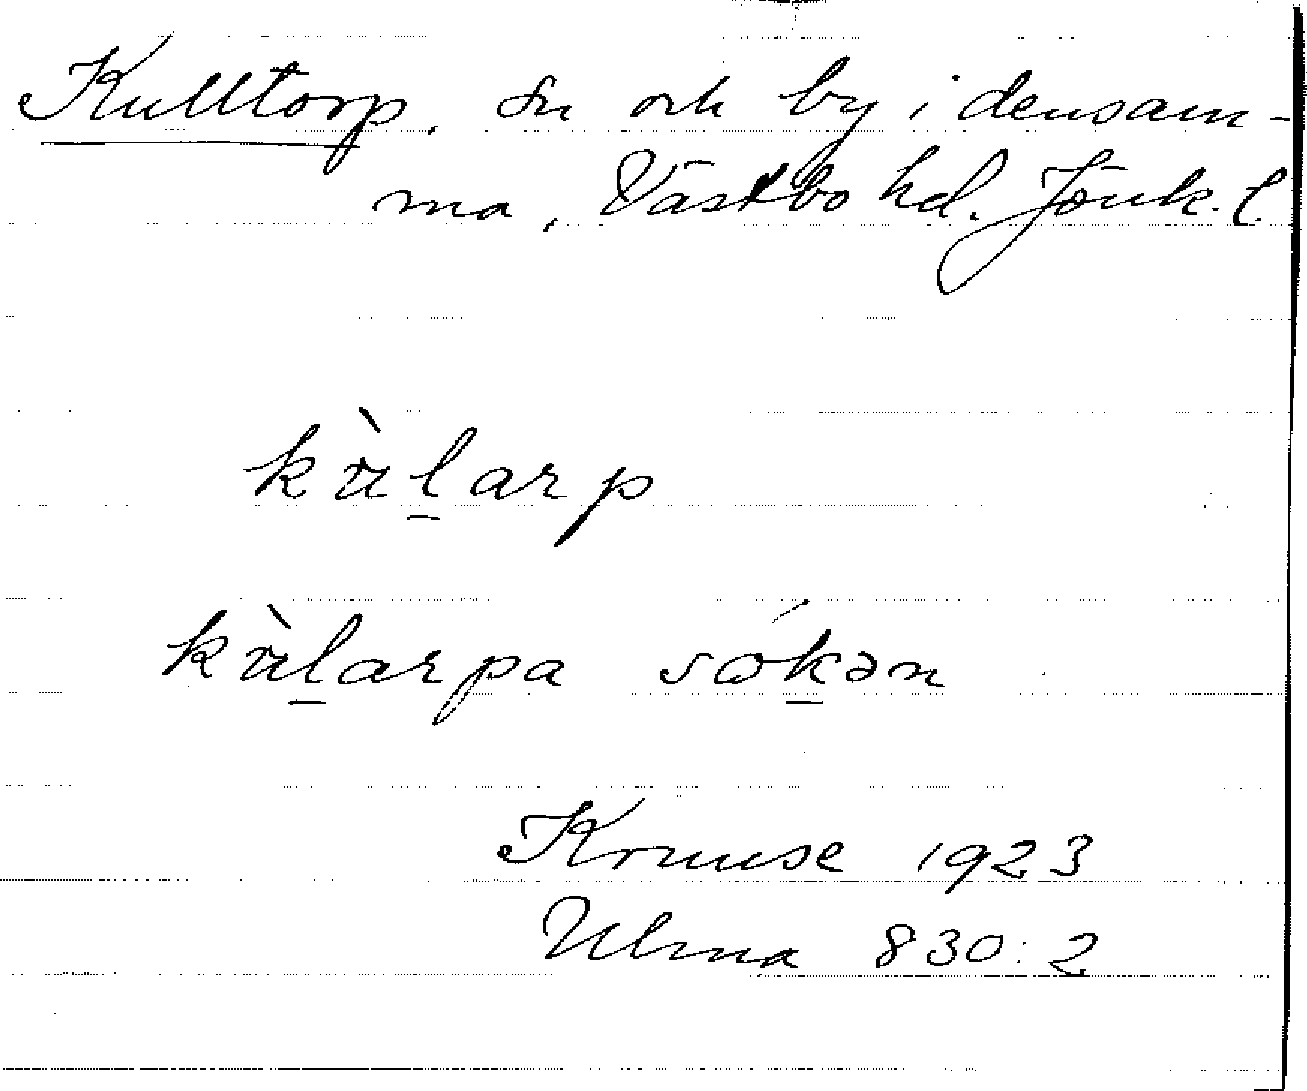 Kulltorp. Sn och by i densam-
ma, Västbo hd. Jönk. l.
kùl̠arp
kùl̠arpa sók̠ən
Kruuse 1923
Ulma 830:2